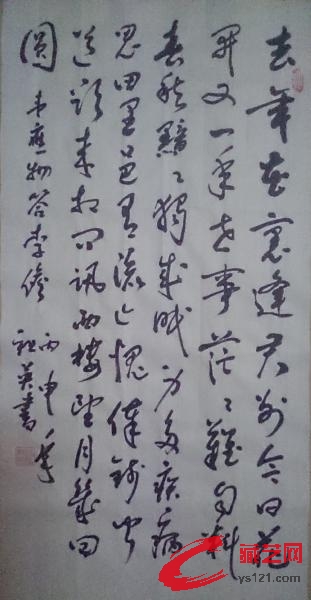 去年花裏逢君别今日花
開又一年世事茫々難自料
春愁黯々獨成眠身多疾病
思田里邑有流亡愧俸錢聞
道欲来相问讯西楼望月幾回
圓 韦應物答李儋
丙申年
祖英書
藏艺网
ys121.com